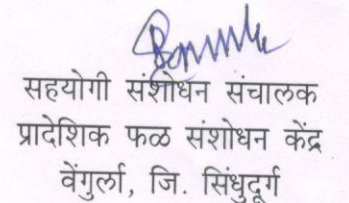 सहयोगी संशोधन संचालक
प्रादेशिक फळ संशोधन केंद्र
वेंगुर्ला, जि. सिंधुदूर्ग